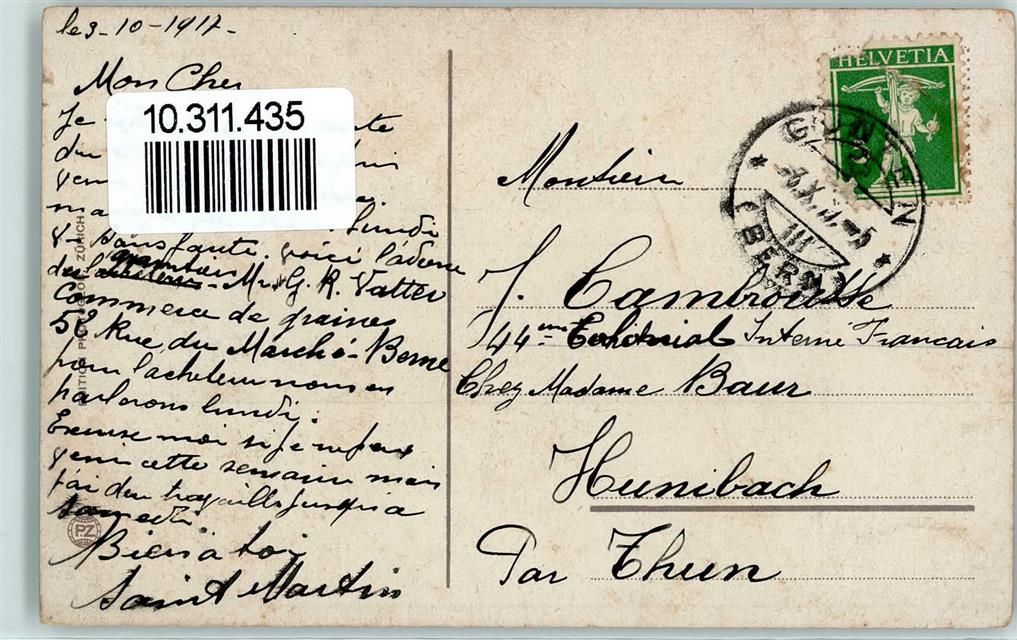 le 3-10-1917-
Mon Cher
Je
du
10.311.435
ma Lundi
sans faute. voici l'adresse
du Mr G. R. Vatter
Commerce de graines
52 Rue du Marché-Berne
pour l'acheteur nous en
parlerons lundi.
Excuse moi si je ne peux
venir cette semaine mais
j'ai du travaille jusqu'a
samedi.
Bien a toi
Saint Martin
ZÜRICH
PZ
HELVETIA
GUNTEN
(BERN)
Monsieur
J. Cambrousse
44eme Colonial Interné Francais
Chez Madame Baur
Hunibach
Par Thun